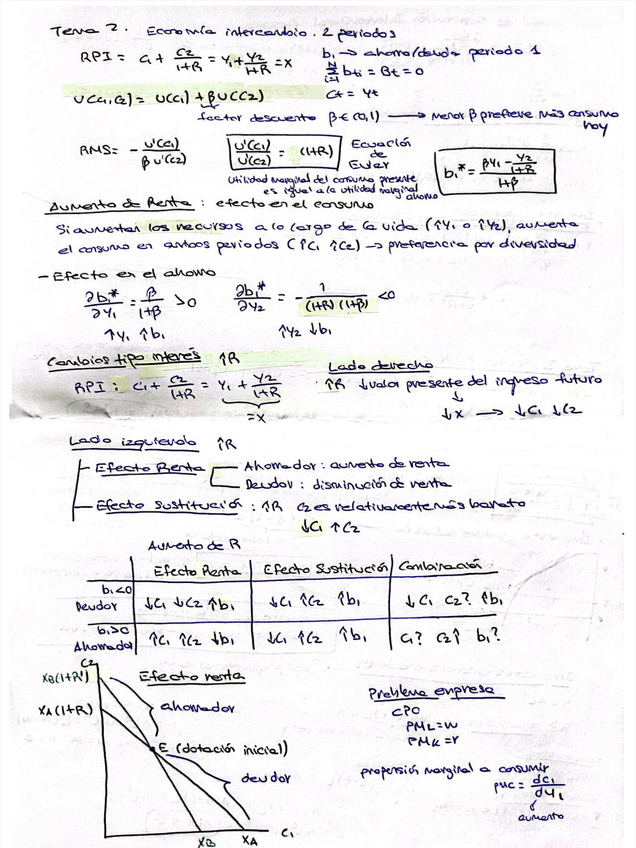 Tema 2. Economía intercambio. 2 periodos
RPI = C1 + C2/1+R = Y1 + Y2/1+R = X
b1 → ahorro/deuda periodo 1
N Σ i=1 bti = Bt = 0
Ct = Yt
U(C1,C2) = U(C1) + βU(C2)
factor descuento β∈(0,1) → menor β prefiere más consumo hoy
RMS = - U'(C1)/β U'(C2)
U'(C1)/U'(C2) = (1+R)
Ecuación de Euler
Utilidad marginal del consumo presente es igual a la utilidad marginal ahorro
b1* = βY1 - Y2/1+R / 1+β
Aumento de Renta : efecto en el consumo
Si aumentan los recursos a lo largo de la vida (↑Y1 o ↑Y2), aumenta
el consumo en ambos periodos (↑C1 ↑C2) → preferencia por diversidad
- Efecto en el ahorro
∂b1*/∂Y1 = β/1+β > 0
∂b1*/∂Y2 = - 1/(1+R)(1+β) < 0
↑Y1 ↑b1
↑Y2 ↓b1
Cambios tipo interés ↑R
Lado derecho
RPI : C1 + C2/1+R = Y1 + Y2/1+R
= X
↑R ↓valor presente del ingreso futuro
↓
↓X → ↓C1 ↓C2
Lado izquierdo ↑R
Efecto Renta
Ahorrador : aumento de renta
Deudor : disminución de renta
Efecto Sustitución : ↑R C2 es relativamente más barato
↓C1 ↑C2
Aumento de R
Efecto Renta Efecto Sustitución Combinación
b1<0 Deudor ↓C1 ↓C2 ↑b1 ↓C1 ↑C2 ↑b1 ↓C1 C2? ↑b1
b1>0 Ahorrador ↑C1 ↑C2 ↓b1 ↓C1 ↑C2 ↑b1 C1? C2↑ b1?
C2
XB(1+R')
XA(1+R)
Efecto renta
ahorrador
E (dotación inicial)
deudor
XB XA C1
Problema empresa
CPO
PML = w
PMK = r
propensión marginal a consumir
PMC = dC1/dY1
aumento